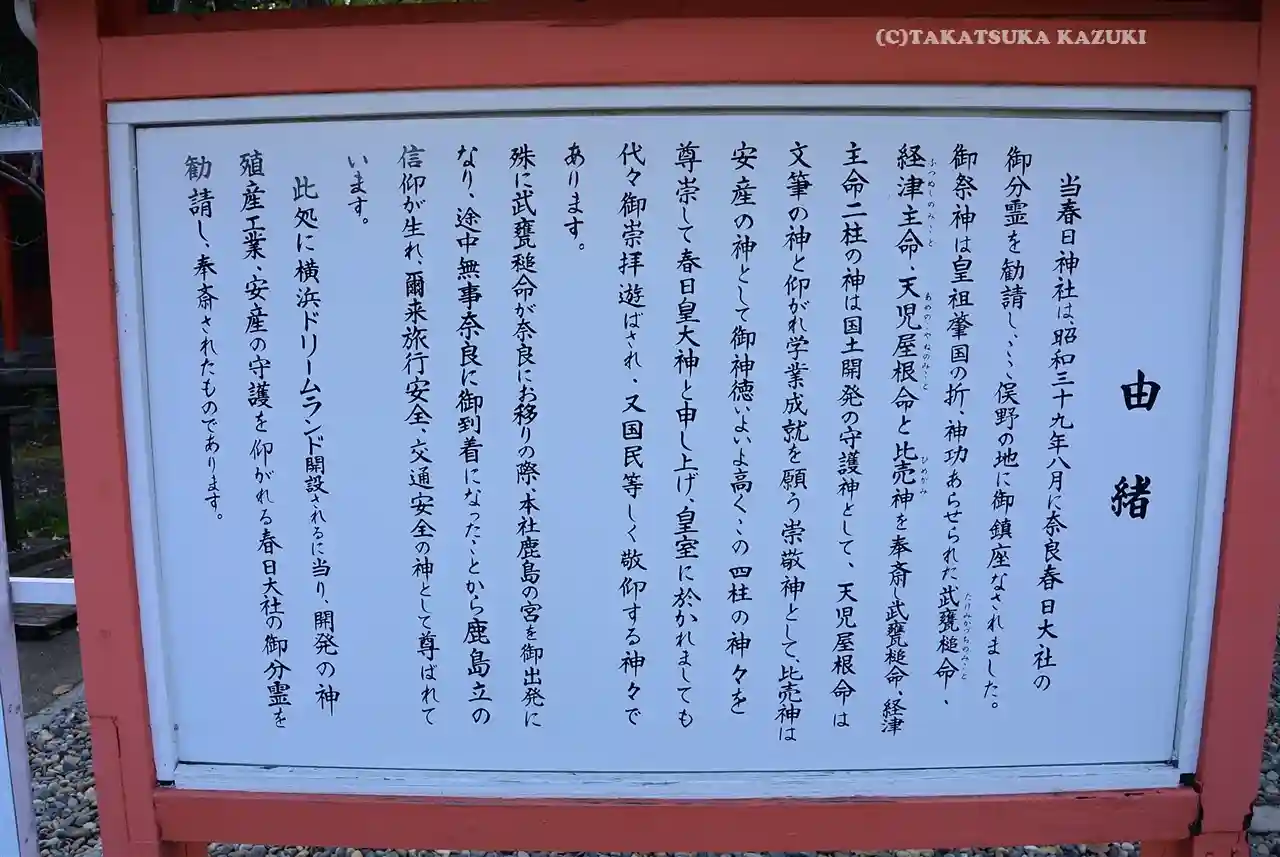 (C)TAKATSUKA KAZUKI
由緒
当春日神社は、昭和三十九年八月に奈良春日大社の
御分霊を勧請し、こゝ俣野の地に御鎮座なされました。
御祭神は皇祖肇国の折、神功あらせられた武甕槌命、
経津主命、天児屋根命と比売神を奉斎し武甕槌命、経津
主命二柱の神は国土開発の守護神として、天児屋根命は
文筆の神と仰がれ学業成就を願う崇敬神として、比売神は
安産の神として御神徳いよいよ高くこの四柱の神々を
尊崇して春日皇大神と申し上げ、皇室に於かれましても
代々御崇拝遊ばされ、又国民等しく敬仰する神々で
あります。
殊に武甕槌命が奈良にお移りの際、本社鹿島の宮を御出発に
なり、途中無事奈良に御到着になったことから鹿島立の
信仰が生れ、爾来旅行安全、交通安全の神として尊ばれて
います。
此処に横浜ドリームランド開設されるに当り、開発の神
殖産工業、安産の守護を仰がれる春日大社の御分霊を
勧請し、奉斎されたものであります。